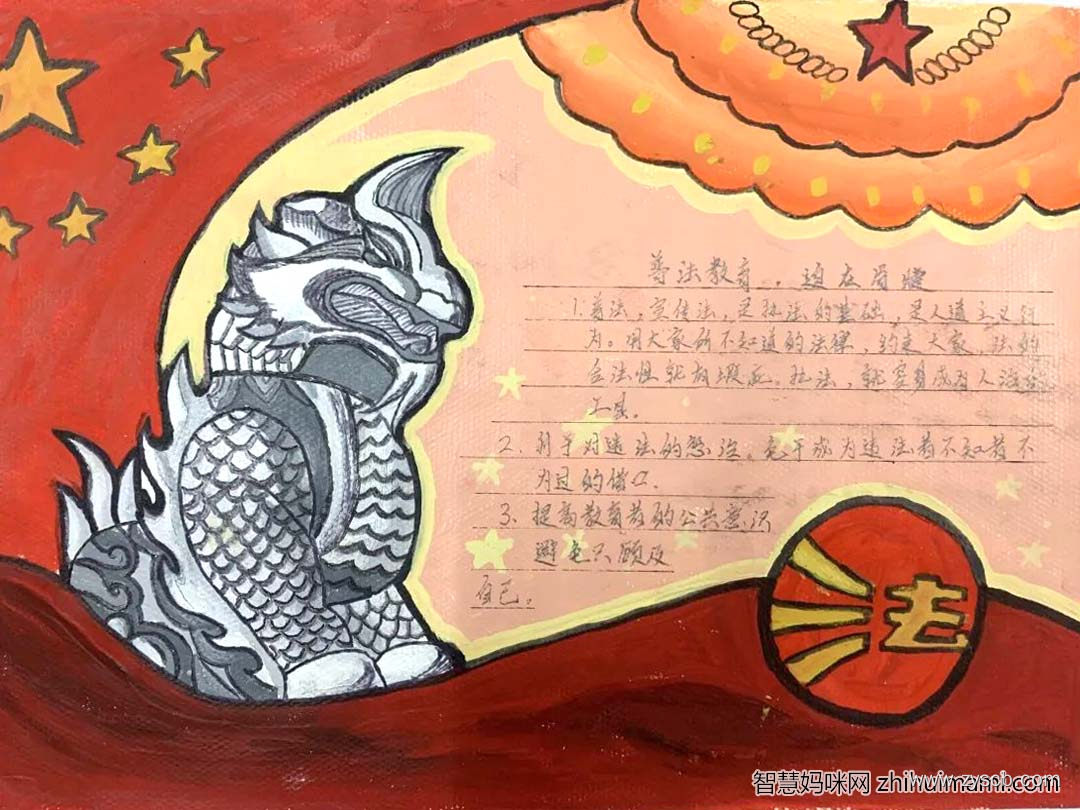 普法教育，迫在眉睫
1.普法，宣传法，是执法的基础，是人道主义行
为。用大家所不知道的法律，约定大家，法的
合法性就有瑕疵。执法，就容易成为人治的
工具。
2.利于对违法的惩治。免于成为违法者不知者不
为过的借口.
3、提高教育者的公共意识
避免只顾及
自己。
法
智慧妈咪网 zhihuimami.com